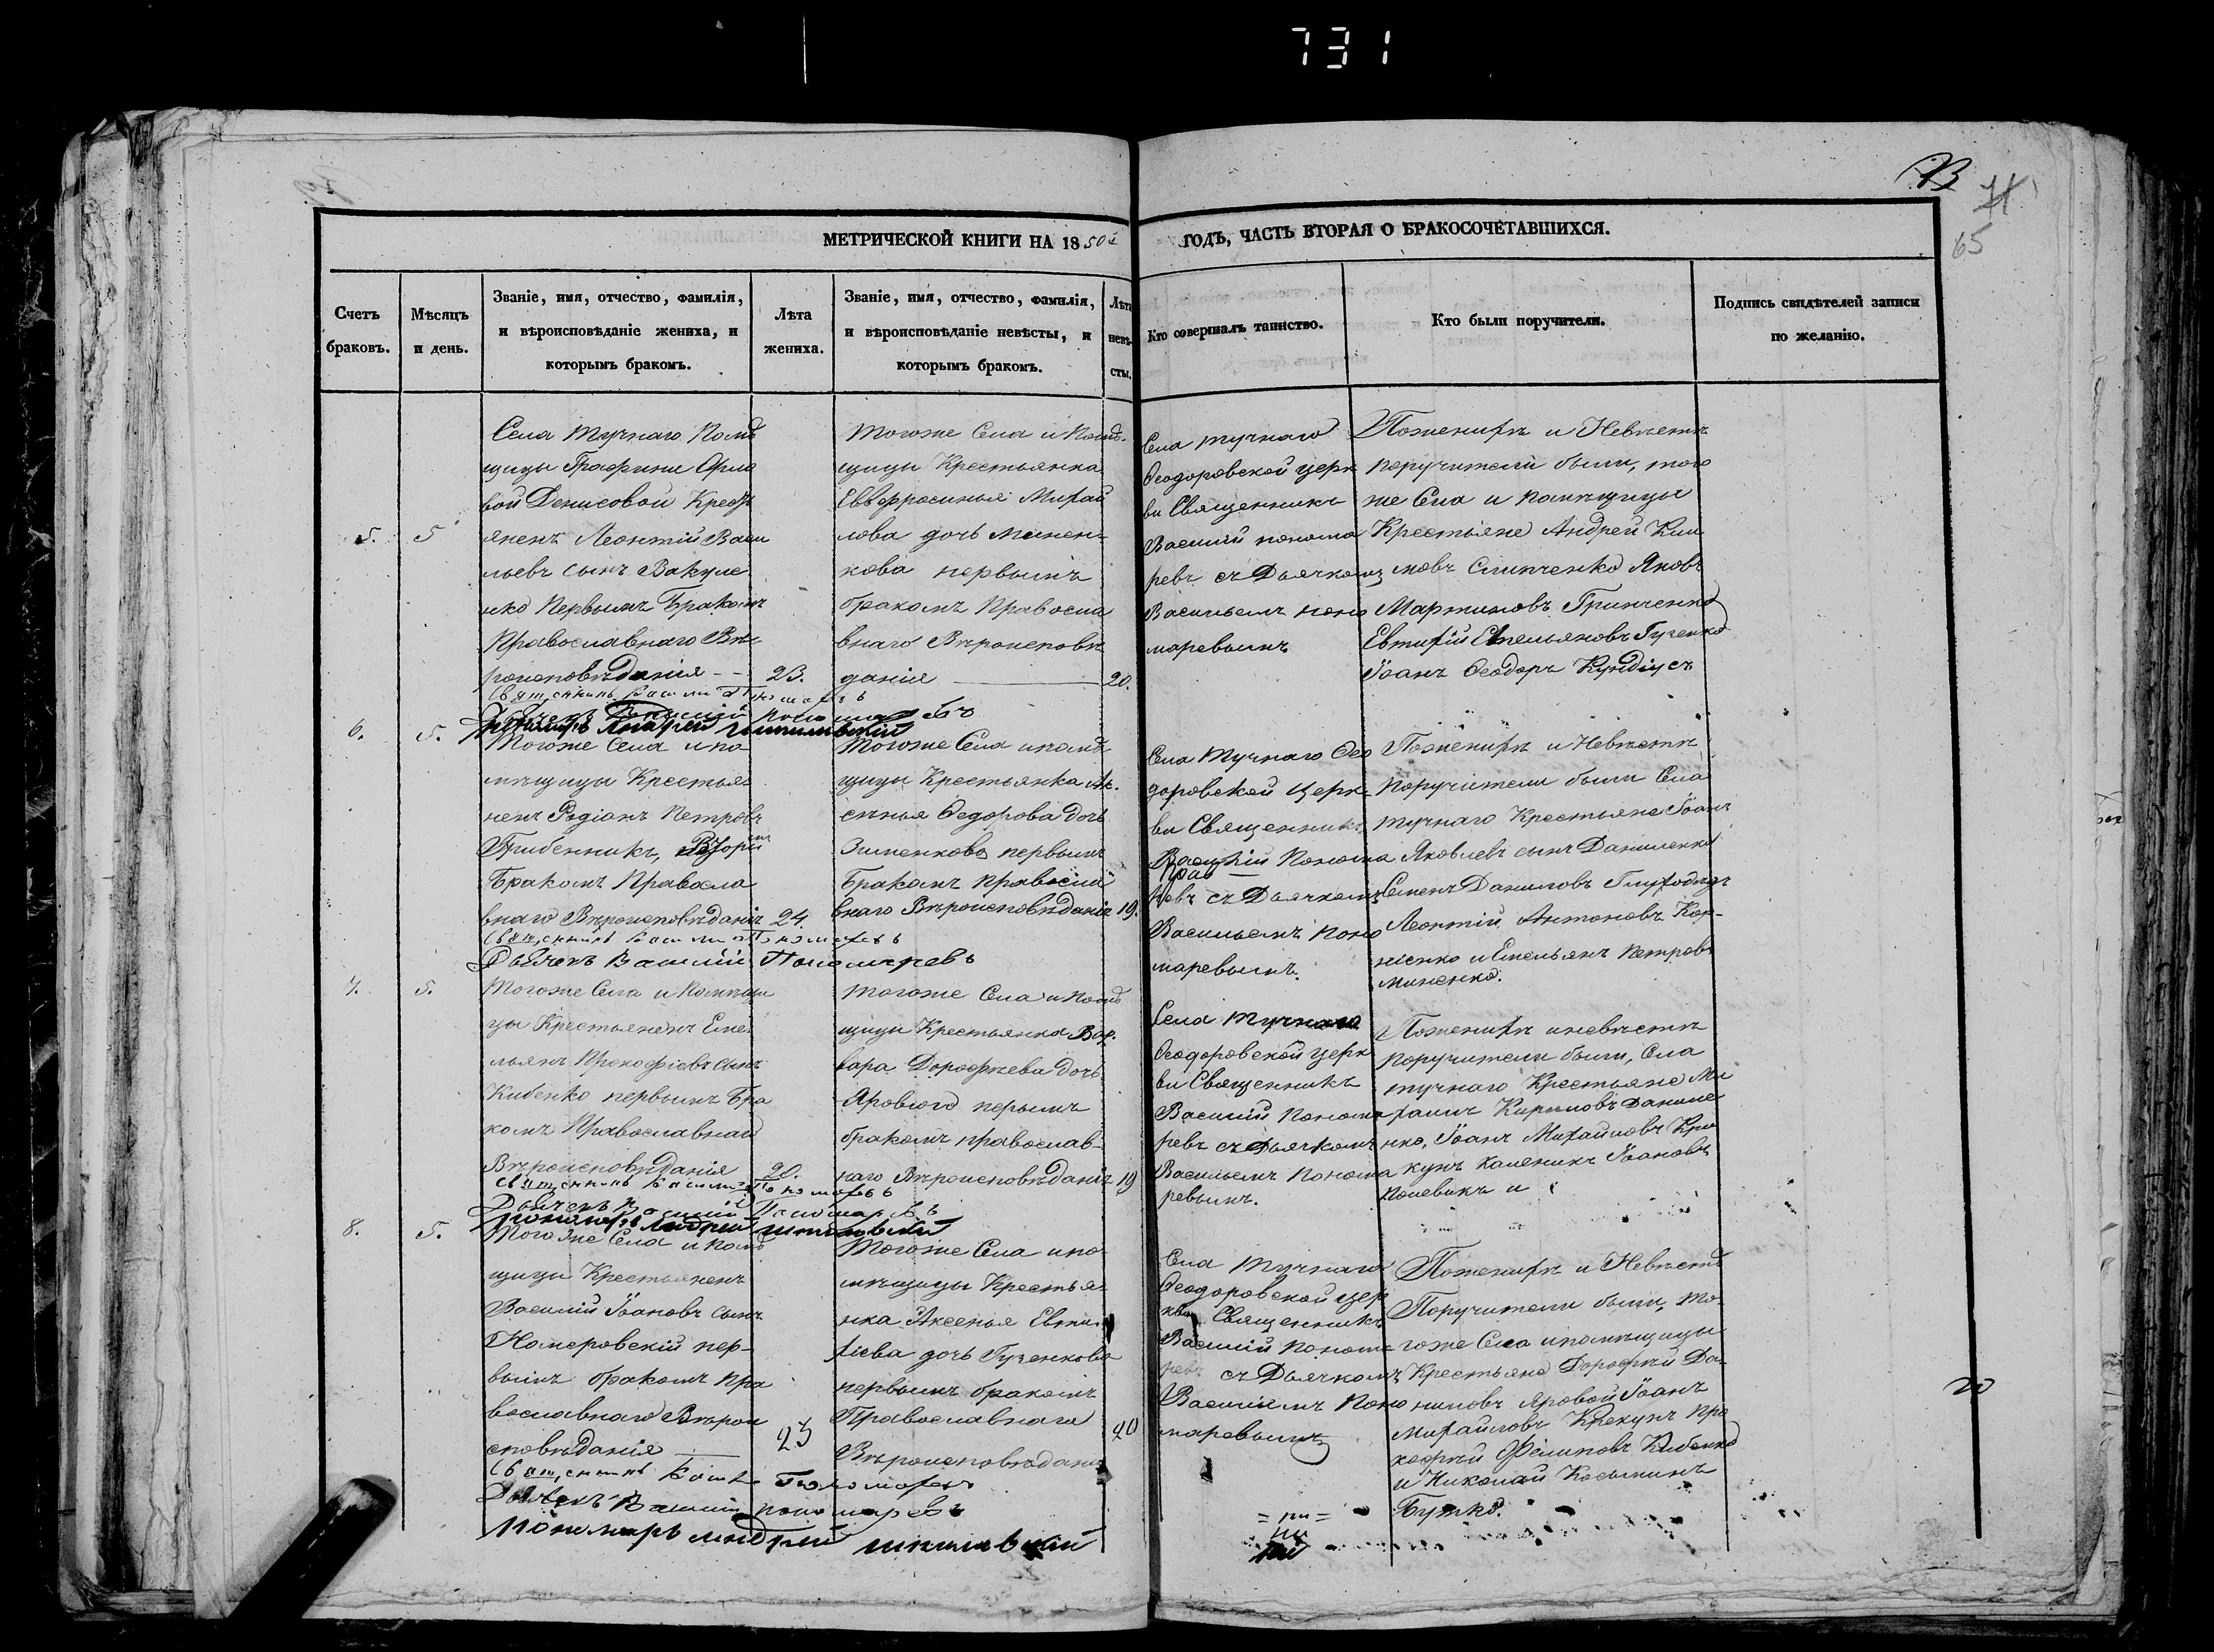 731
В
71
65
МЕТРИЧЕСКОЙ КНИГИ НА 1850й ГОДЪ, ЧАСТЬ ВТОРАЯ О БРАКОСОЧЕТАВШИХСЯ.
Счетъ браковъ.
Мѣсяцъ и день.
Званіе, имя, отчество, фамилія,
и вѣроисповѣданіе жениха, и
которымъ бракомъ.
Лѣта жениха.
Званіе, имя, отчество, фамилія,
и вѣроисповѣданіе невѣсты, и
которымъ бракомъ.
Лѣта невѣ-сты.
Кто совершалъ таинство.
Кто были поручители.
Подпись свидѣтелей записи
по желанію.
5.
5
Села Тучнаго Помѣ
щицы Графини Орло
вой Денисовой Кресть
яненъ Леонтій Васи
льевъ сынъ Вакуле
нко первымъ Бракомъ
Православнаго Вѣ
роисповѣданія
23.
Тогоже Села и Помѣ-
щицы Крестьянка
Евфросинья Михай
лова дочь Минен-
кова первымъ
бракомъ Правосла
внаго Вѣроисповѣ
данія
20.
Села Тучнаго
Ѳеодоровской церк
ви Священникъ
Василій понома
ревъ съ Дьячкомъ
Васильемъ поно
маревымъ
Поженихѣ и Невѣстѣ
поручители были, того
же Села и помѣщицы
Крестьяне Андрей Кли
мовъ Слипченко Яковъ
Мартиновъ Гринченко
Евтихій Емельяновъ Гученко
Іоанъ Ѳеодоръ Кундіусъ
Священникъ Василій Пономаревъ
Дьячекъ Василій Пономаревъ
Пономарь Андрей
6.
5.
Тогоже Села и по
мѣщицы Крестья
ненъ Родіанъ Петровъ
Грибенникъ,
Бракомъ Правосла
внаго Вѣроисповѣданія
24.
Тогоже Села и помѣ
щицы Крестьянка Ак-
сѣнья Ѳедорова дочь
Зименкова первымъ
Бракомъ правосла
внаго Вѣроисповѣданія
19.
Села Тучнаго Ѳео
доровской Церк-
ви Священникъ
Василій Понома
ревъ съ Дьячкомъ
Васильемъ Поно
маревымъ.
Поженихѣ и Невѣстѣ
поручители были Села
тучнаго Крестьяне Іоанъ
Яковлевъ сынъ Даниленко
Семенъ Даниловъ
Леонтій Антоновъ Кор-
ніенко и Емельянъ Петровъ
Миненко.
Священникъ Василій Пономаревъ
Дьячекъ Василій Пономаревъ
7.
5.
Тогоже Села и Помѣщи
цы Крестьяненъ Еме-
льянъ Прокофіевъ сынъ
Кибенко первымъ Бра
комъ Православнаго
Вѣроисповѣданія
20.
Тогоже Села и Помѣ
щицы Крестьянка Вар-
вара Дорофѣева дочь
Ярового первымъ
бракомъ православ-
наго Вѣроисповѣданія
19
Села Тучнаго
Ѳеодоровской церк
ви Священникъ
Василій Понома
ревъ съ Дьячкомъ
Васильемъ Понома
ревымъ.
Поженихѣ и невѣстѣ
поручители были, Села
тучнаго Крестьяне Ми
хаилъ Кириловъ Данile
нко, Іоанъ Михайловъ Кри
кунъ Каленикъ Іоановъ
Полевикъ и
Священникъ Василій Пономаревъ
Дьячекъ Василій Пономаревъ
Пономарь Андрей
8.
5.
Тогоже Села и помѣ
щицы Крестьяненъ
Василій Іоановъ сынъ
Комеровскій пер-
вымъ бракомъ пра
вославнаго Вѣрои
сповѣданія
23
Тогоже Села и по
мѣщицы Крестья-
нка Аксенья Евти-
хіева дочь Гученкова
первымъ бракомъ
Православнаго
Вѣроисповѣданія
20
Села Тучнаго
Ѳеодоровской цер
кви Священникъ
Василій Понома
ревъ съ Дьячкомъ
Васильемъ Поно
маревымъ
Поженихѣ и Невѣстѣ
Поручители были, то-
гоже Села и помѣщицы
Крестьяне Дорофѣй Да-
ниловъ Яровой Іоанъ
Михайловъ Крекунъ Про
кофѣй Филиповъ Кибенко
и Николай Косьминъ
Бутко.
Священникъ Пономаревъ
Дьячекъ Василій пономаревъ
Пономарь Андрей